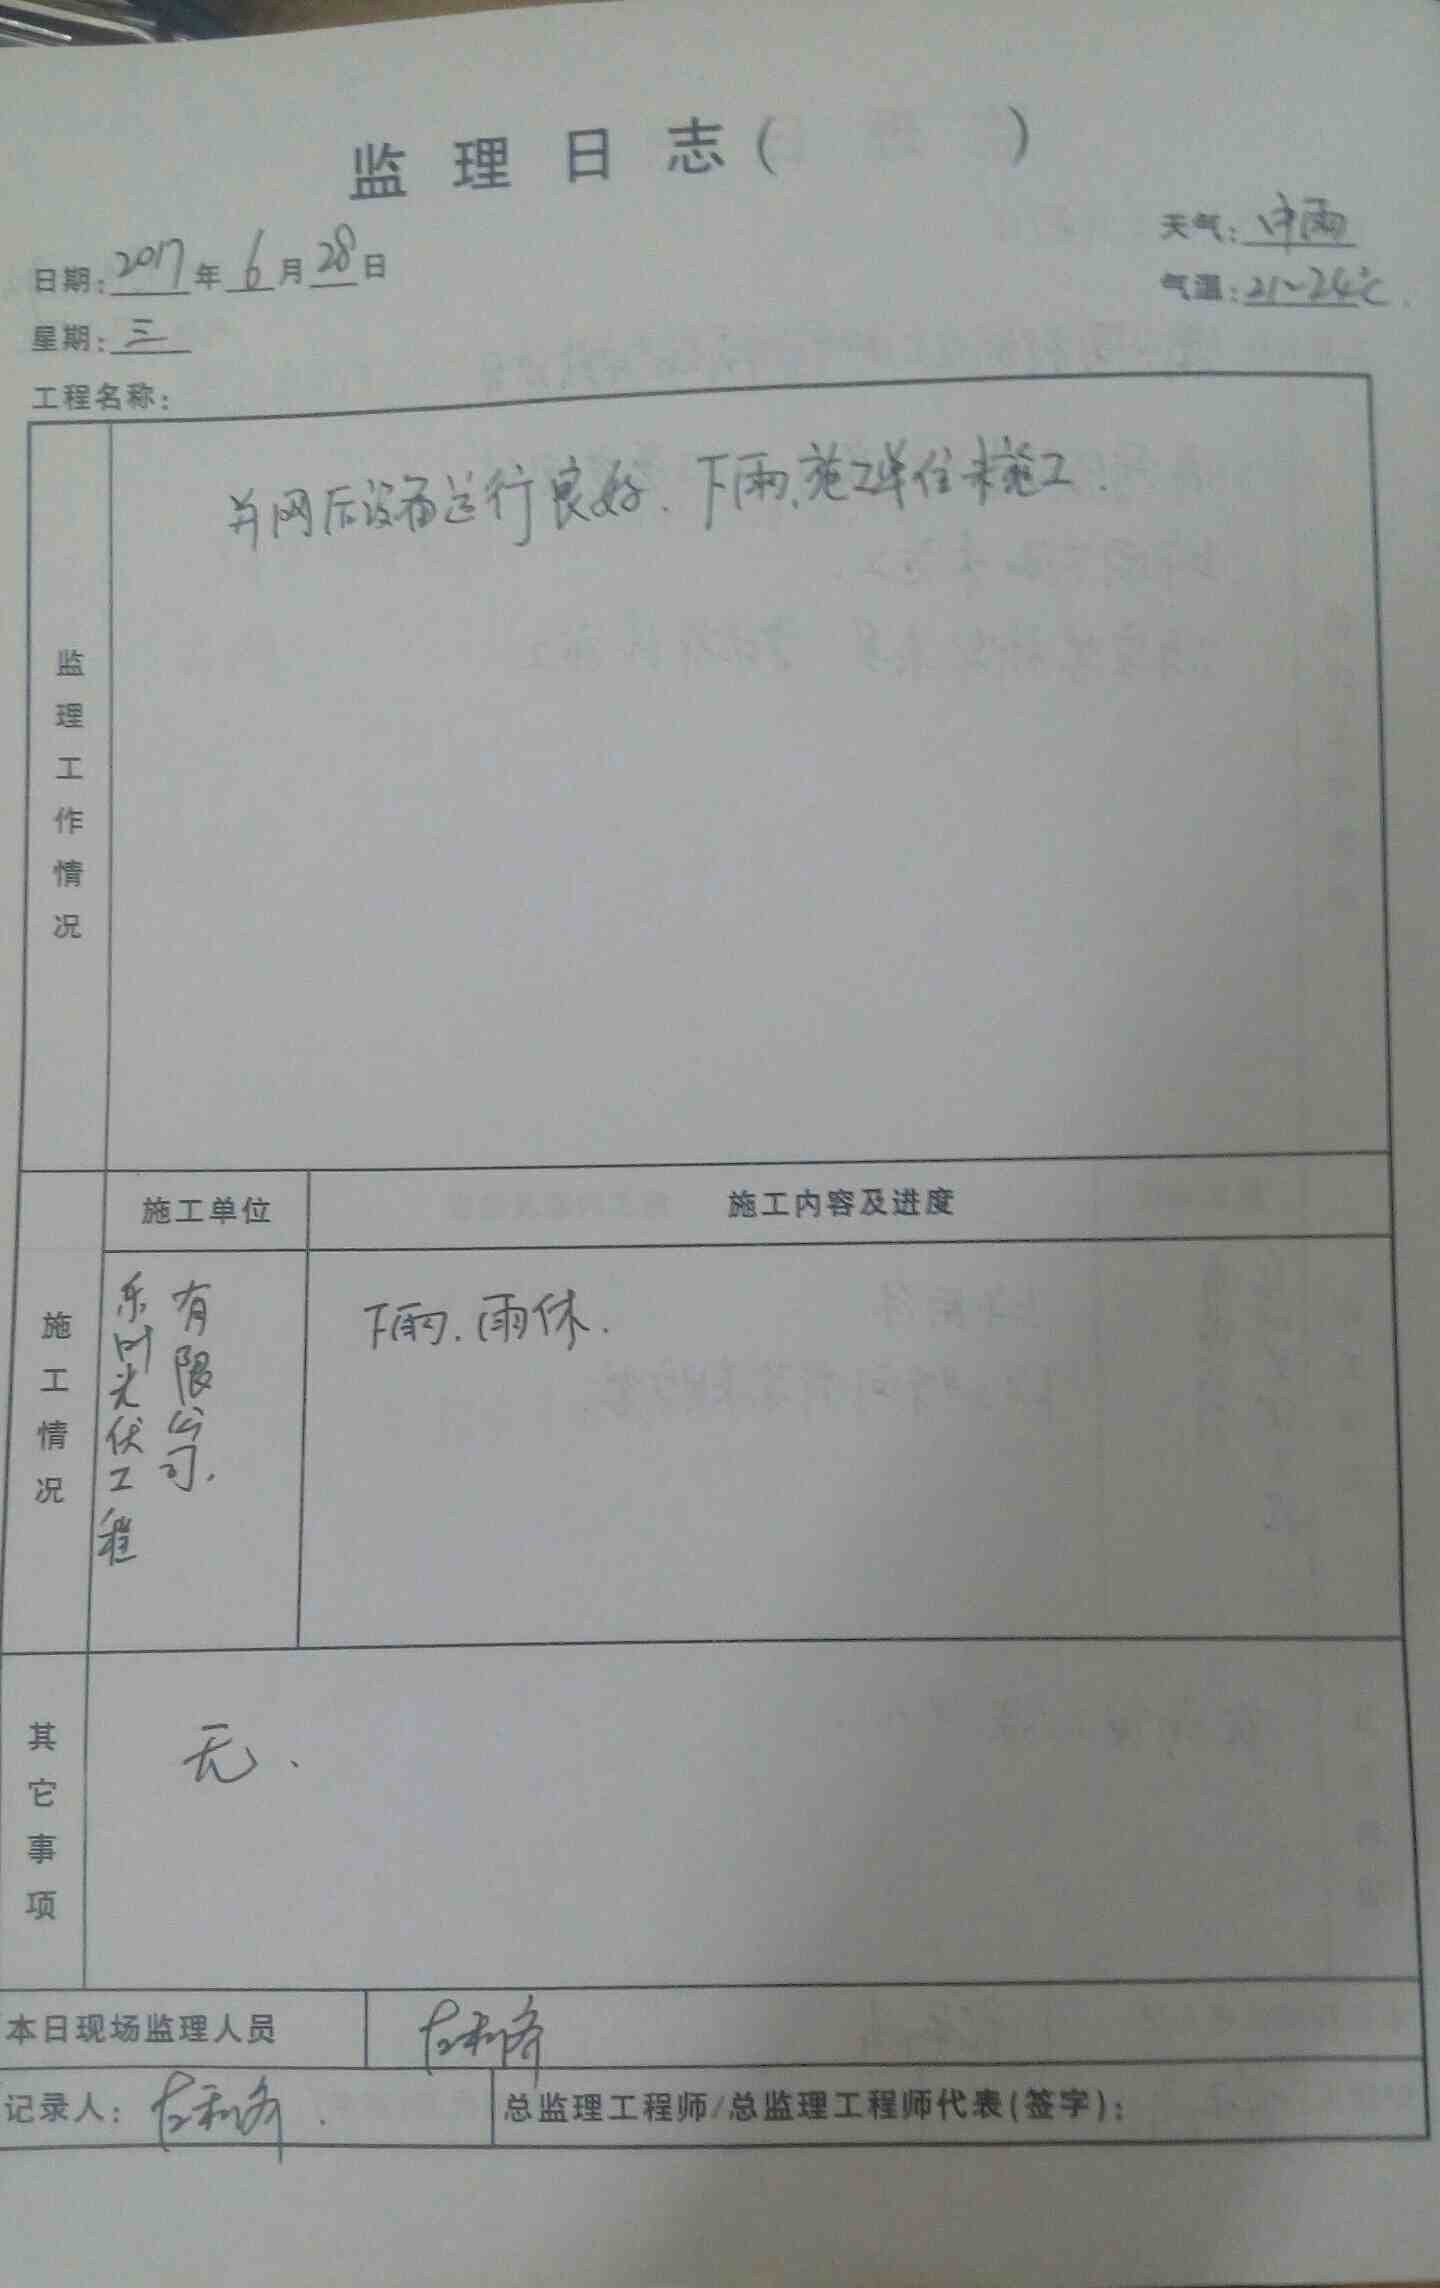 监理日志( )
天气:中雨
日期:2017年6月28日
气温:21~24℃.
星期:三
工程名称:
监理工作情况
并网后设备运行良好.下雨.施工单位未施工.
施工单位
施工内容及进度
施工情况
光伏工程
有限公司.
下雨.雨休.
其它事项
无.
本日现场监理人员
记录人:
总监理工程师/总监理工程师代表(签字):